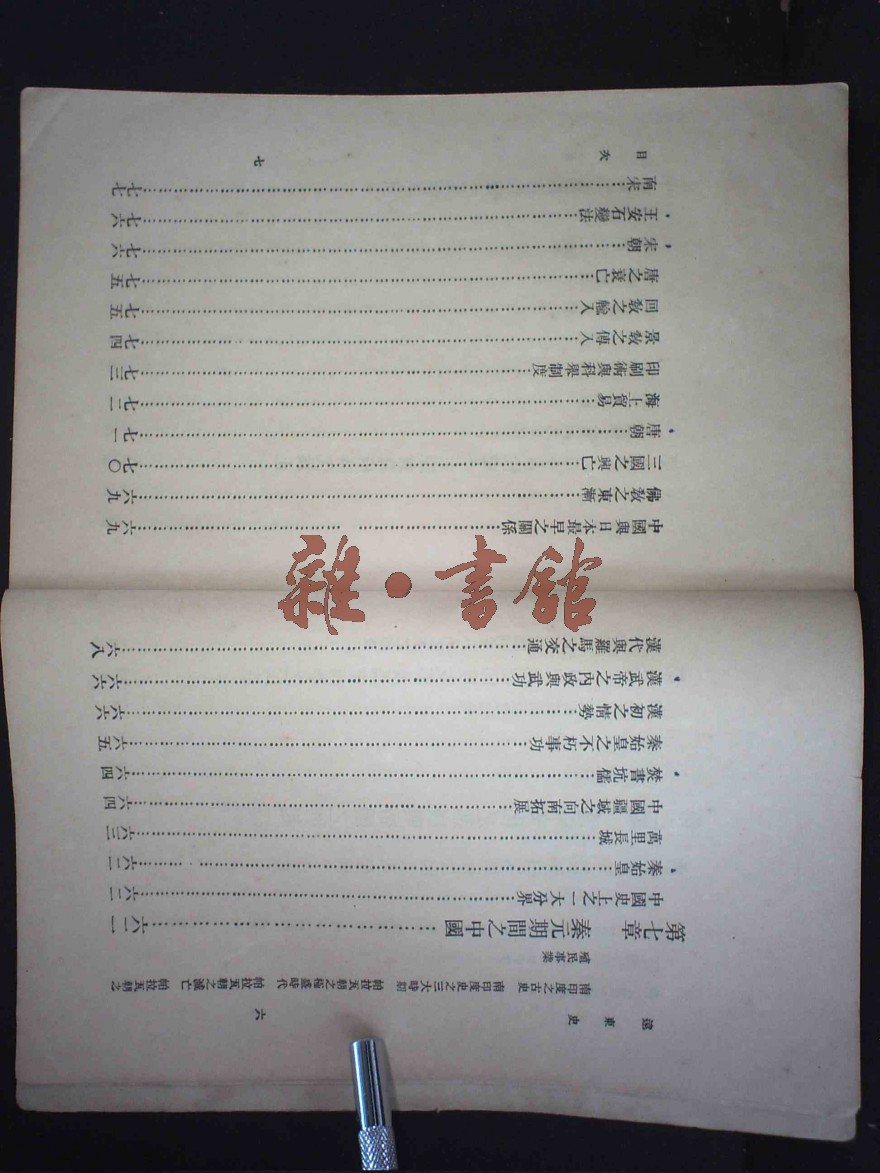 遠東史 六
南印度之古史 南印度史之三大時期 帕拉瓦朝之極盛時代 帕拉瓦朝之滅亡 帕拉瓦朝之
殖民事業
第七章 秦元期間之中國……六二一
中國史上之一大分界……六二
秦始皇……六二
萬里長城……六三
中國疆域之向南拓展……六四
焚書坑儒……六四
秦始皇之不朽事功……六五
漢初之情勢……六六
漢武帝之內政與武功……六六
漢代與羅馬之交通……六八
目次 七
中國與日本最早之關係……六九
佛教之東漸……六九
三國之興亡……七〇
唐朝……七一
海上貿易……七二
印刷術與科舉制度……七三
景教之傳入……七四
回教之輸入……七五
唐之衰亡……七五
宋朝……七六
王安石變法……七六
南宋……七七
雜·書館